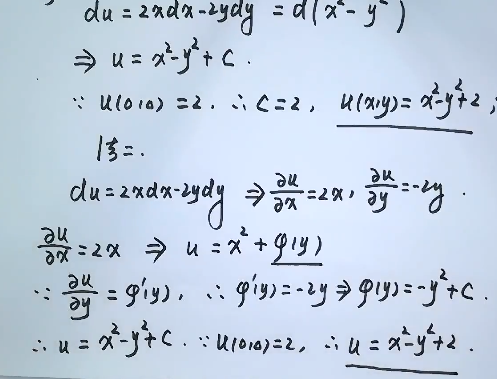 du = 2xdx-2ydy = d(x²-y²)
⇒ u = x²-y²+c.
∵ u(0,0) = 2. ∴ c=2, u(x,y)= x²-y²+2;
du = 2xdx-2ydy ⇒ ∂u/∂x = 2x, ∂u/∂y = -2y.
∂u/∂x = 2x ⇒ u = x² + φ(y)
∵ ∂u/∂y = φ'(y), ∴ φ'(y) = -2y ⇒ φ(y) = -y²+c.
∴ u = x²-y²+c. ∵ u(0,0)=2, ∴ u = x²-y²+2.